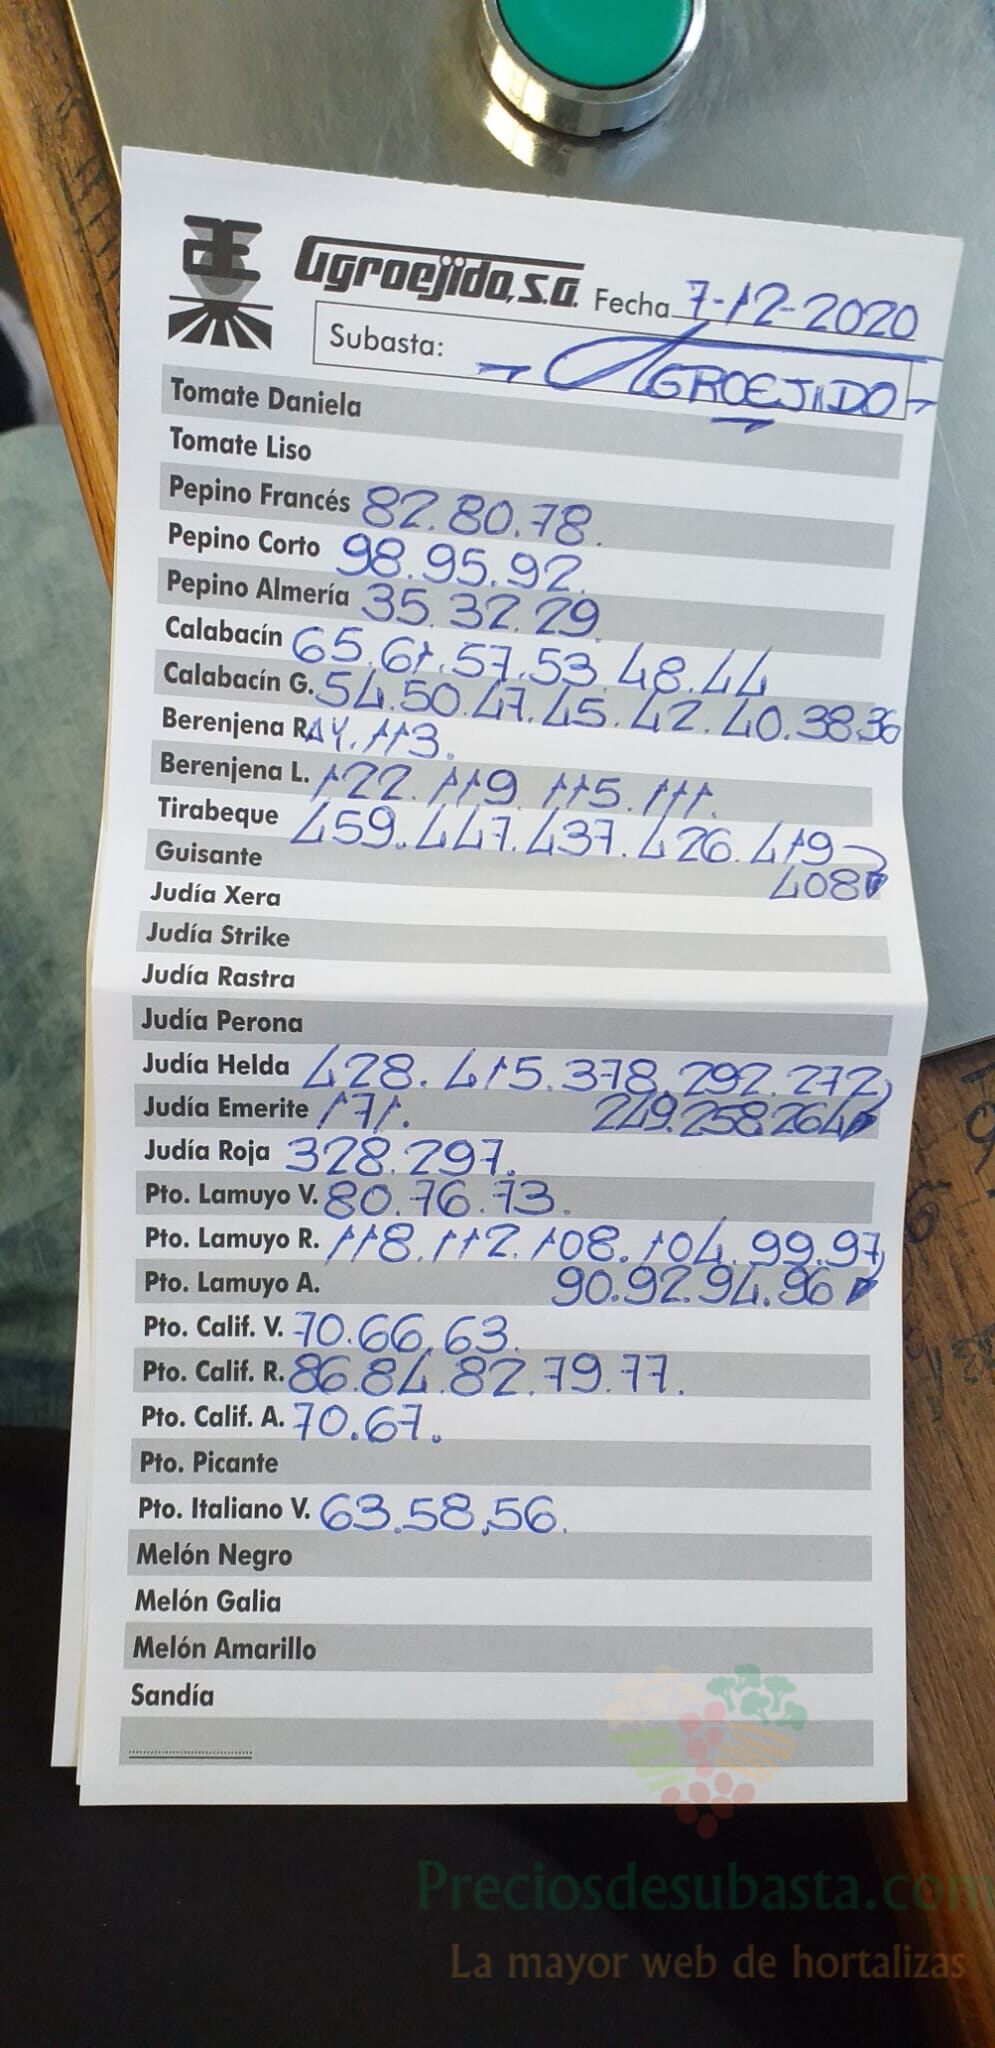 Agroejido, s.a. Fecha 7-12-2020
Subasta: AGROEJIDO
Tomate Daniela
Tomate Liso
Pepino Francés 82.80.78.
Pepino Corto 98.95.92.
Pepino Almería 35.32.29
Calabacín 65.61.57.53.48.44
Calabacín G. 54.50.47.45.42.40.38.36
Berenjena RAY.113.
Berenjena L. 122.119.115.111.
Tirabeque 459.447.437.426.419
408
Guisante
Judía Xera
Judía Strike
Judía Rastra
Judía Perona
Judía Helda 428.415.378.292.272
249.258.264
Judía Emerite 171.
Judía Roja 328.297.
Pto. Lamuyo V. 80.76.73.
Pto. Lamuyo R. 118.112.108.104.99.97
90.92.94.96
Pto. Lamuyo A.
Pto. Calif. V. 70.66.63.
Pto. Calif. R. 86.84.82.79.77.
Pto. Calif. A. 70.67.
Pto. Picante
Pto. Italiano V. 63.58.56.
Melón Negro
Melón Galia
Melón Amarillo
Sandía
Preciosdesubasta.com
La mayor web de hortalizas